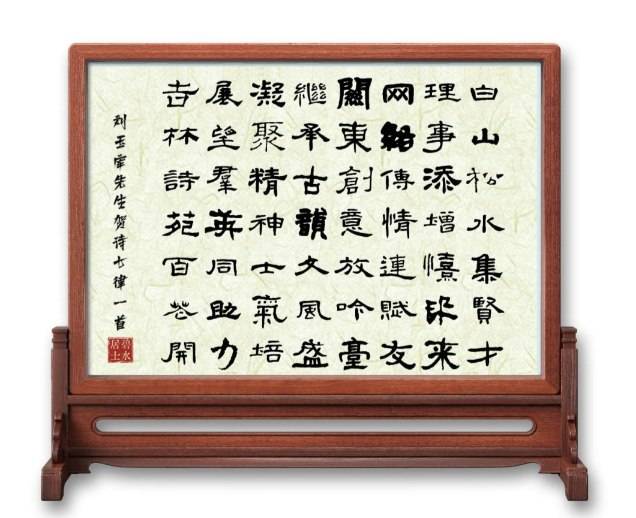 白山松水集賢才
理事添增憘来
网絡傳情連賦友
關東創意放吟臺
繼承古韻文風盛
凝聚精神士氣培
展望羣英同助力
吉林詩苑百花開
刘玉先生贺诗七律一首
碧水居士